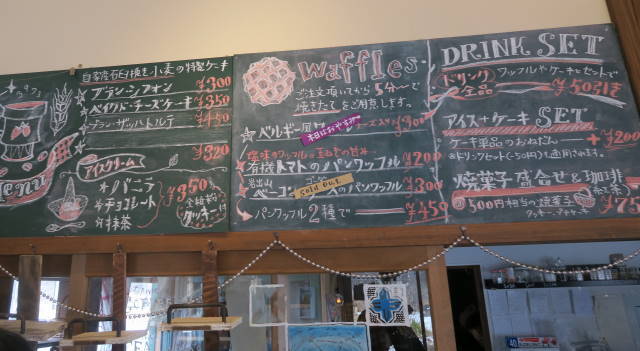 Menu
自家産石臼挽き小麦の特製ケーキ
ブランシフォン ¥300
ベイクド・チーズケーキ ¥350
ブラン・ザッハトルテ ¥450
¥320
アイスクリーム
バニラ
チョコレート
抹茶
¥350
全粒粉クッキー付
Waffles
ご注文頂いてから5分〜で
焼きたてをご用意します。
ベルギー風
本日はおやすみ
¥300
有機トマトのパンワッフル ¥200
岩出山
ベーコン
Sold Out
のパンワッフル ¥300
パンワッフル2種で ¥450
DRINK SET
ドリンク全品
ワッフルやケーキとセットで
¥50引き
アイス+ケーキ SET
ケーキ単品のおねだん +¥200
ドリンクセット(-50円)も適用されます。
焼菓子盛合せ&珈琲
500円相当の焼菓子
¥75
40